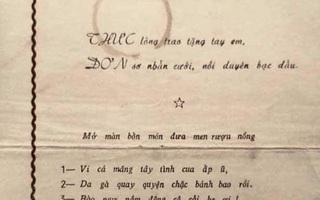 THỰC lòng trao tặng tay em,
ĐƠN sơ nhẫn cưới, nối duyên bạc đầu.
Mở màn bồn món đưa men rượu nồng
1— Vi cá măng tây tình cua ấp ủ,
2— Da gà quay quyện chặc bánh bao rồi.
3— Bào ngư nấm đông cô